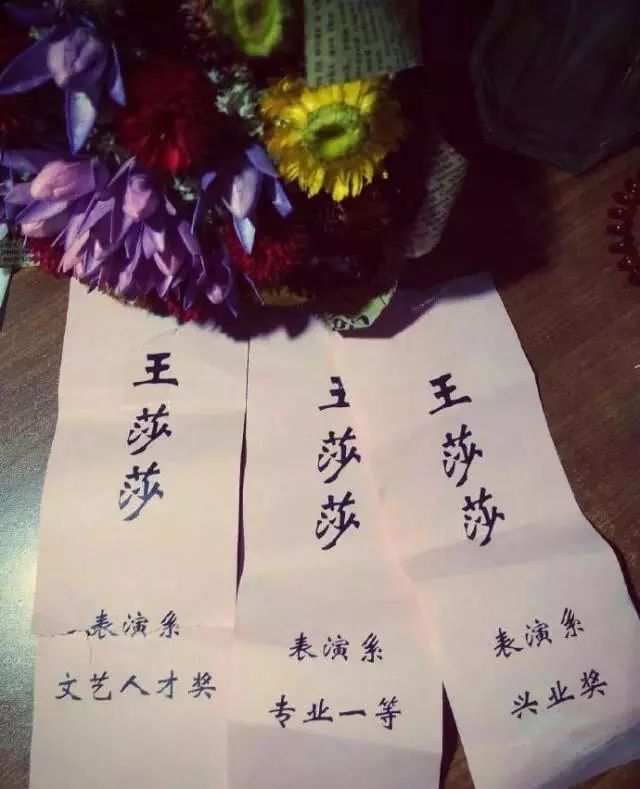 王莎莎
表演系
文艺人才奖
王莎莎
表演系
专业一等
王莎莎
表演系
兴业奖